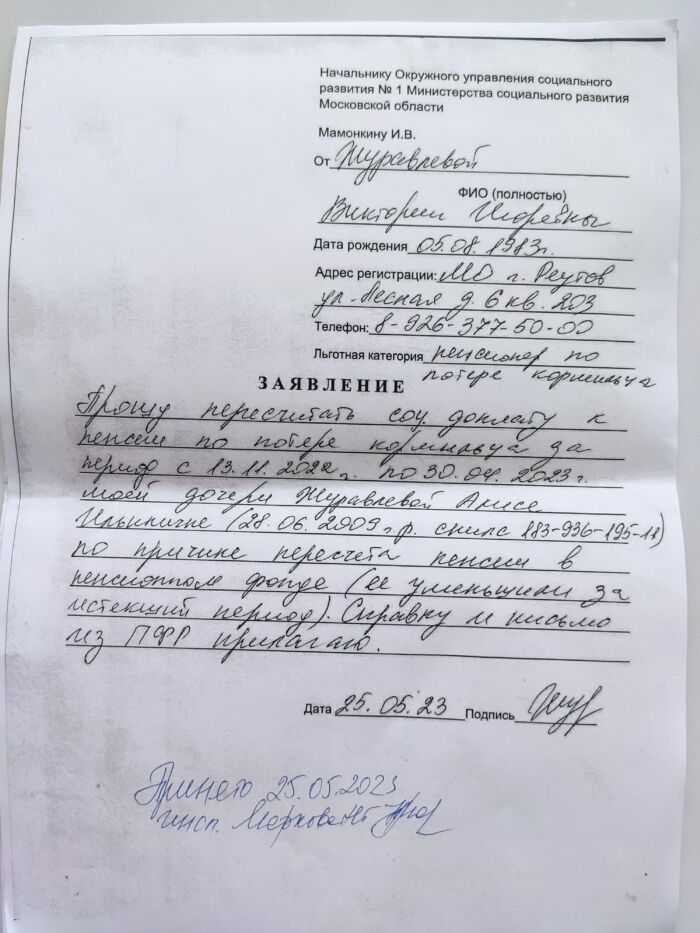 Начальнику Окружного управления социального
развития № 1 Министерства социального развития
Московской области
Мамонкину И.В.
От Журавлевой
ФИО (полностью)
Виктории Игоревны
Дата рождения 05.08.1983г.
Адрес регистрации: МО г. Реутов
ул. Лесная д. 6 кв. 203
Телефон: 8-926-377-50-00
Льготная категория пенсионер по
потере кормильца
ЗАЯВЛЕНИЕ
Прошу пересчитать соц. доплату к
пенсии по потере кормильца за
период с 13.11.2022г. по 30.04.2023г.
моей дочери Журавлевой Алисе
Ильиничне (28.06.2009г.р. снилс 183-936-195-11)
по причине пересчета пенсии в
пенсионном фонде (ее уменьшили за
истекший период). Справку и письмо
из ПФР прилагаю.
Дата 25.05.23 Подпись
Принято 25.05.2023
инсп.